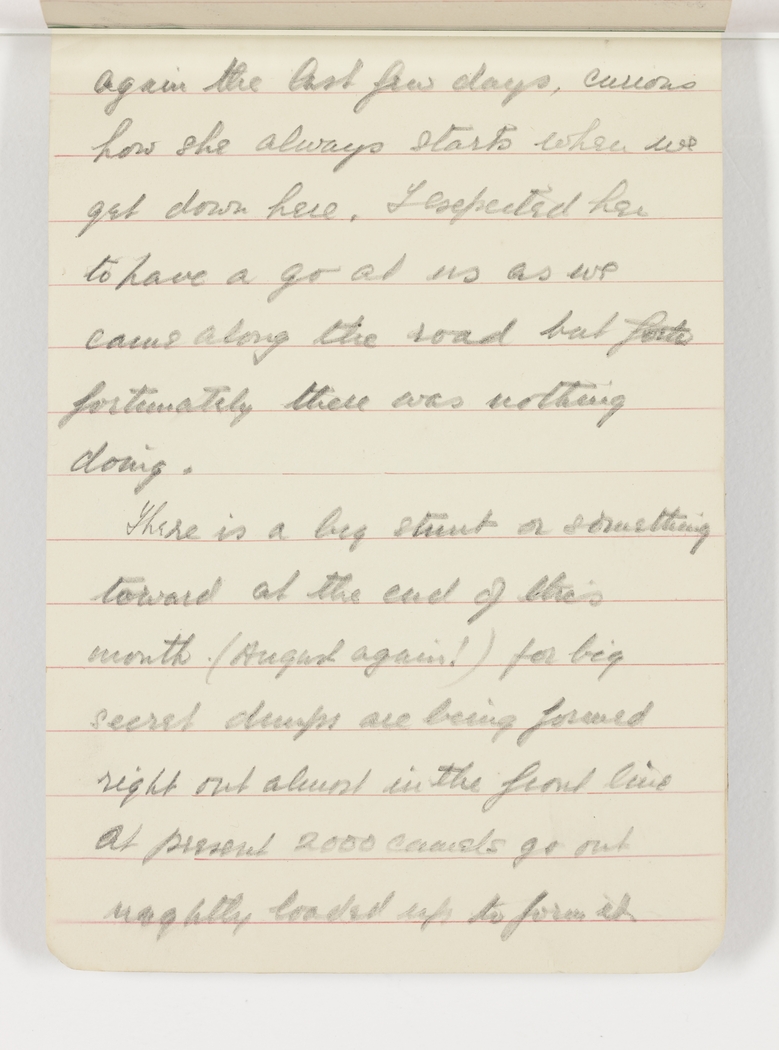 again the last few days, curious
how she always starts when we
get down here. I expected her
to have a go at us as we
came along the road but
fortunately there was nothing
doing.
There is a big stunt or something
toward at the end of this
month. (August again!) for big
secret dumps are being formed
right out almost in the front line
at present 2000 camels go out
nightly loaded up to form it